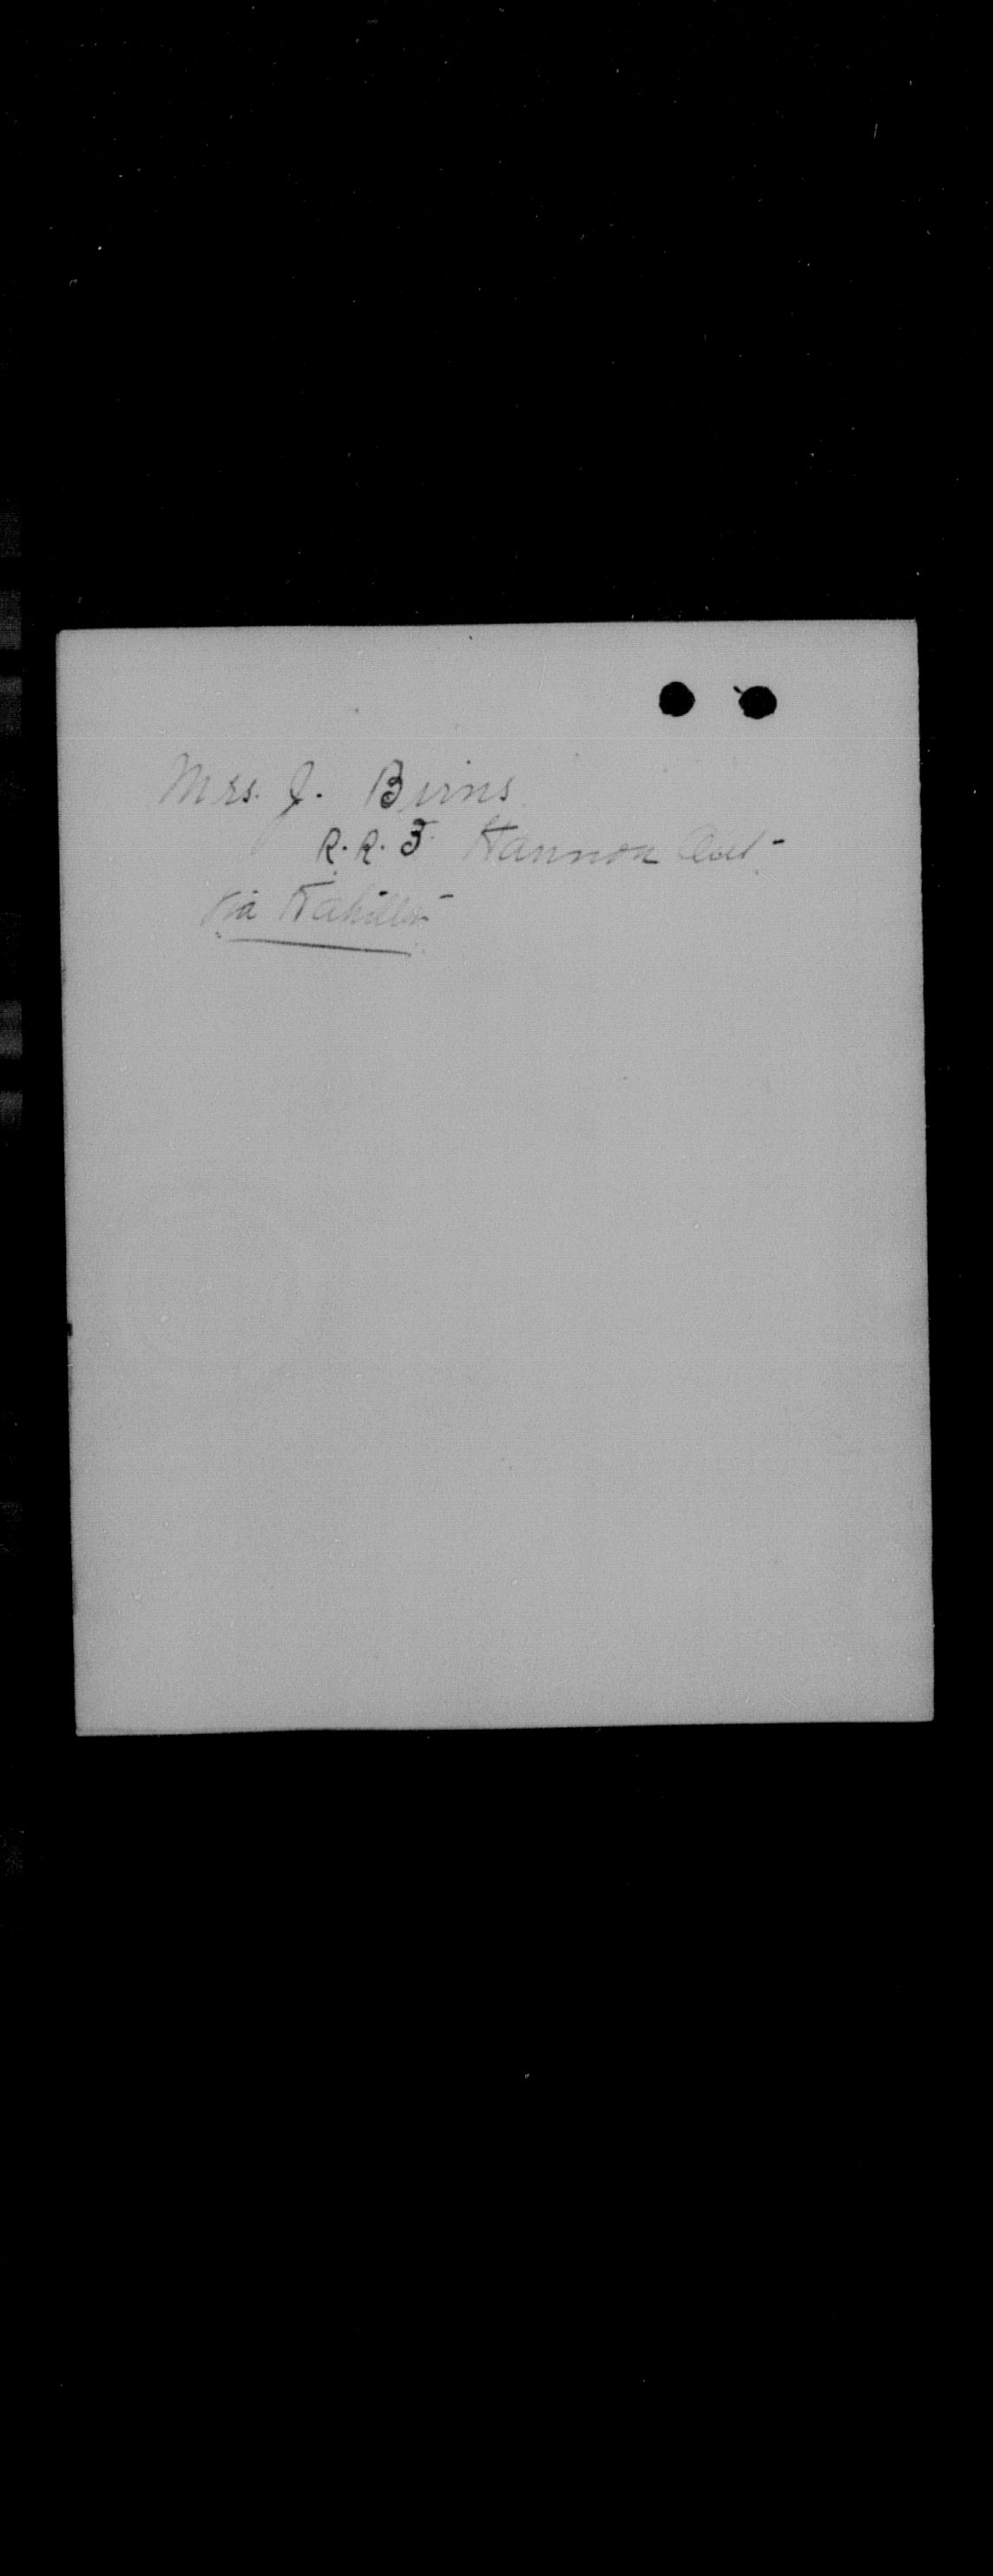 Mrs. J. Burns
R.R. 3 Hannon Ont-
via Hamilton